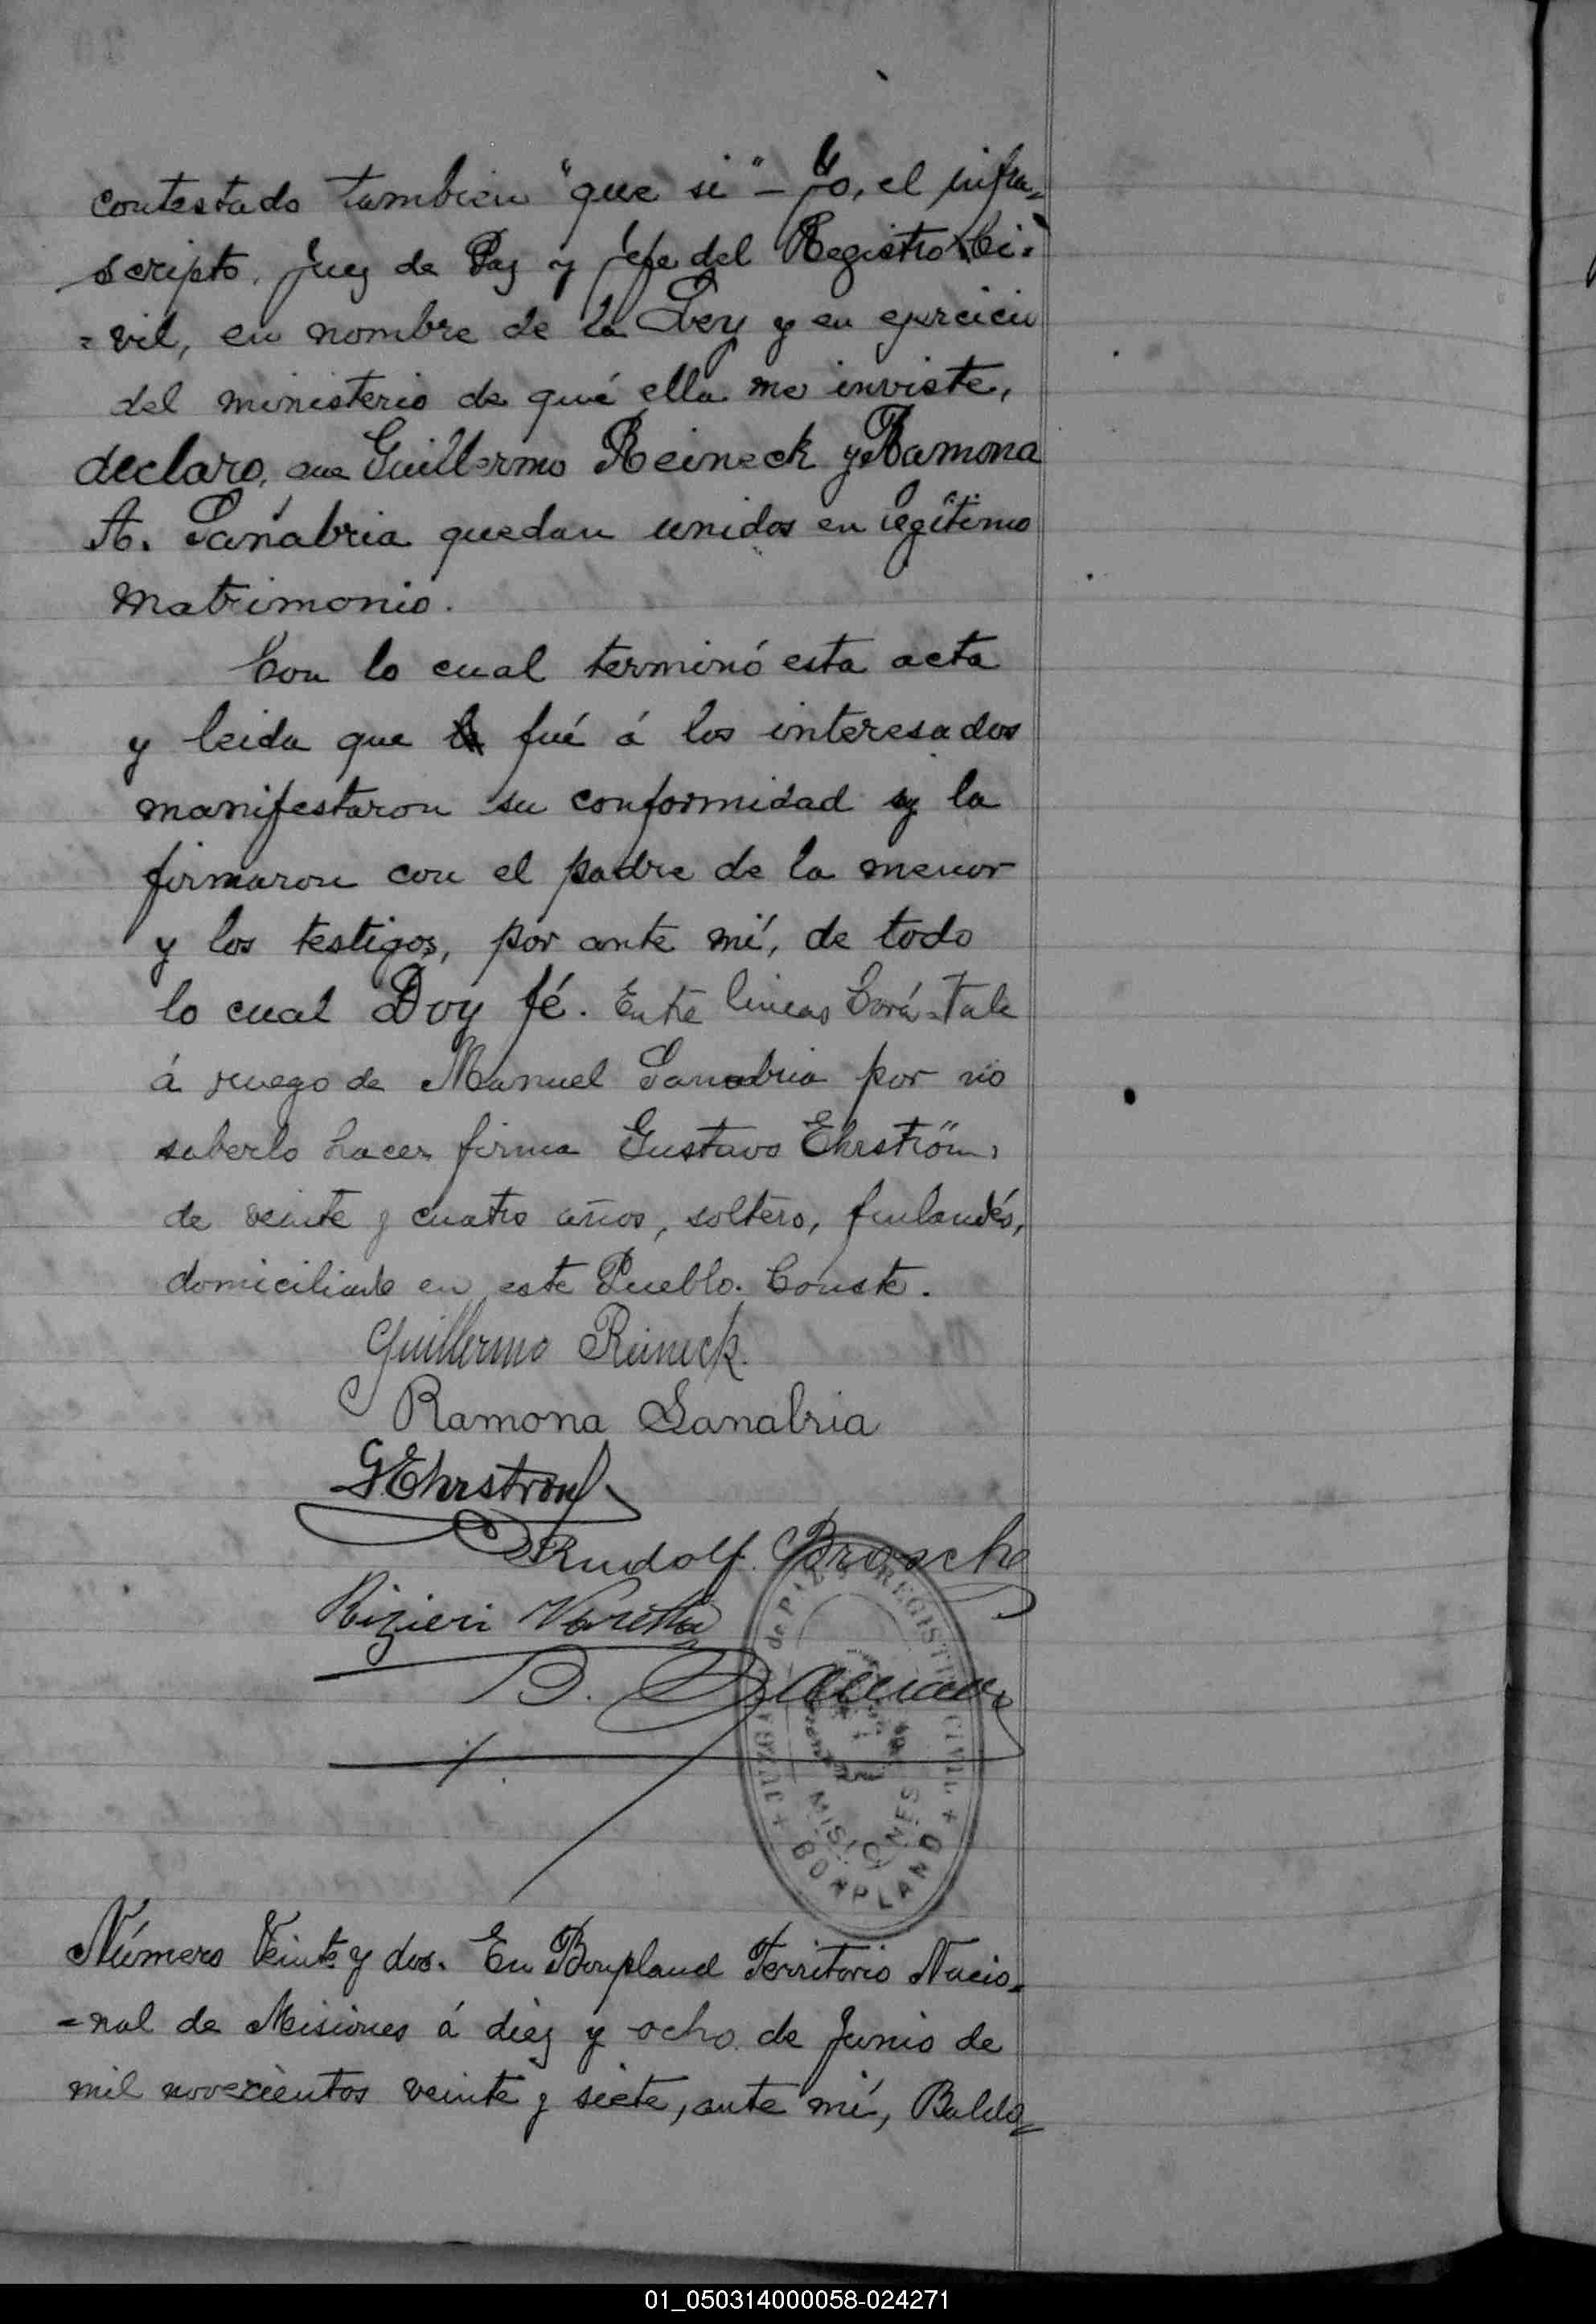 contestado tambien "que si" – Yo, el infra-
scripto, Juez de Paz y Jefe del Registro Ci-
=vil, en nombre de la Ley y en ejercicio
del ministerio de qué ella me inviste,
declaro, que Guillermo Reineck y Ramona
A. Sanabria quedan unidos en legítimo
matrimonio.
Con lo cual terminó esta acta
y leida que fué á los interesados
manifestaron su conformidad y la
firmaron con el padre de la menor
y los testigos, por ante mí, de todo
lo cual Doy fé. Entre lineas Corá=Vale
á ruego de Manuel Sanabria por no
saberlo hacer firma Gustavo Ehrström,
de veinte y cuatro años, soltero, finlandés,
domiciliado en este Pueblo. Conste.
Guillermo Reineck.
Ramona Sanabria
G Ehrström
Rudolf
Rizieri
B.
JUZGADO de PAZ Y REGISTRO CIVIL
MISIONES
+ BONPLAND +
Número Veinte y dos. En Bonpland Territorio Nacio=
=nal de Misiones á diez y ocho de Junio de
mil novecientos veinte y siete, ante mí, Baldo=
01_050314000058-024271